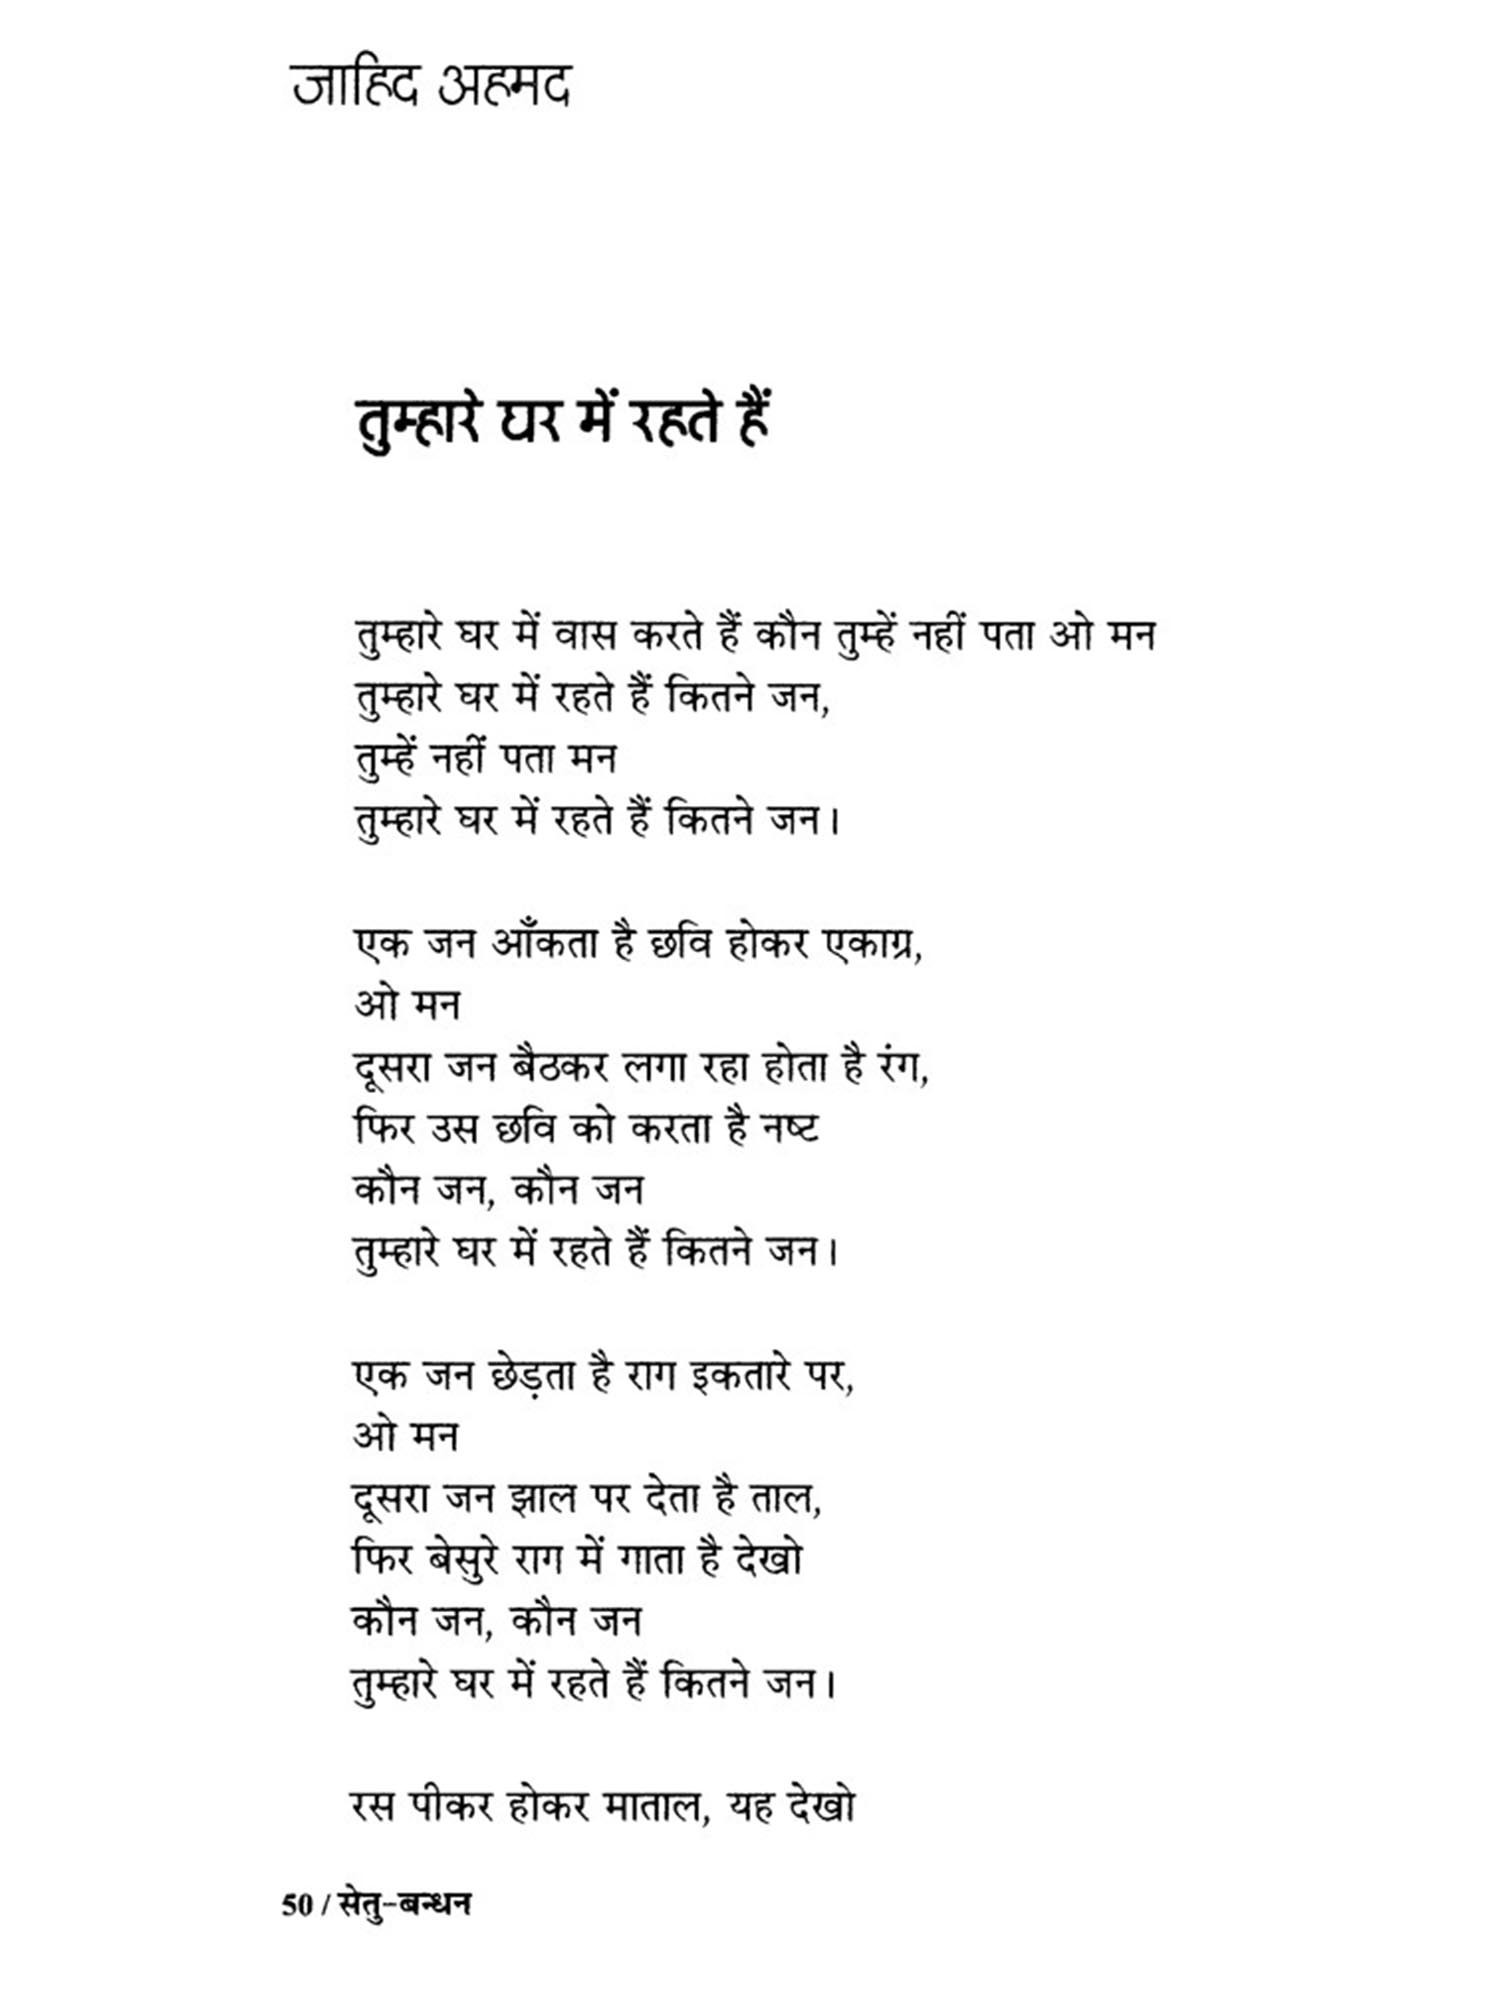 जाहिद अहमद
तुम्हारे घर में रहते हैं
तुम्हारे घर में वास करते हैं कौन तुम्हें नहीं पता ओ मन
तुम्हारे घर में रहते हैं कितने जन,
तुम्हें नहीं पता मन
तुम्हारे घर में रहते हैं कितने जन।
एक जन आँकता है छवि होकर एकाग्र,
ओ मन
दूसरा जन बैठकर लगा रहा होता है रंग,
फिर उस छवि को करता है नष्ट
कौन जन, कौन जन
तुम्हारे घर में रहते हैं कितने जन।
एक जन छेड़ता है राग इकतारे पर,
ओ मन
दूसरा जन झाल पर देता है ताल,
फिर बेसुरे राग में गाता है देखो
कौन जन, कौन जन
तुम्हारे घर में रहते हैं कितने जन।
रस पीकर होकर माताल, यह देखो
50 / सेतु-बन्धन